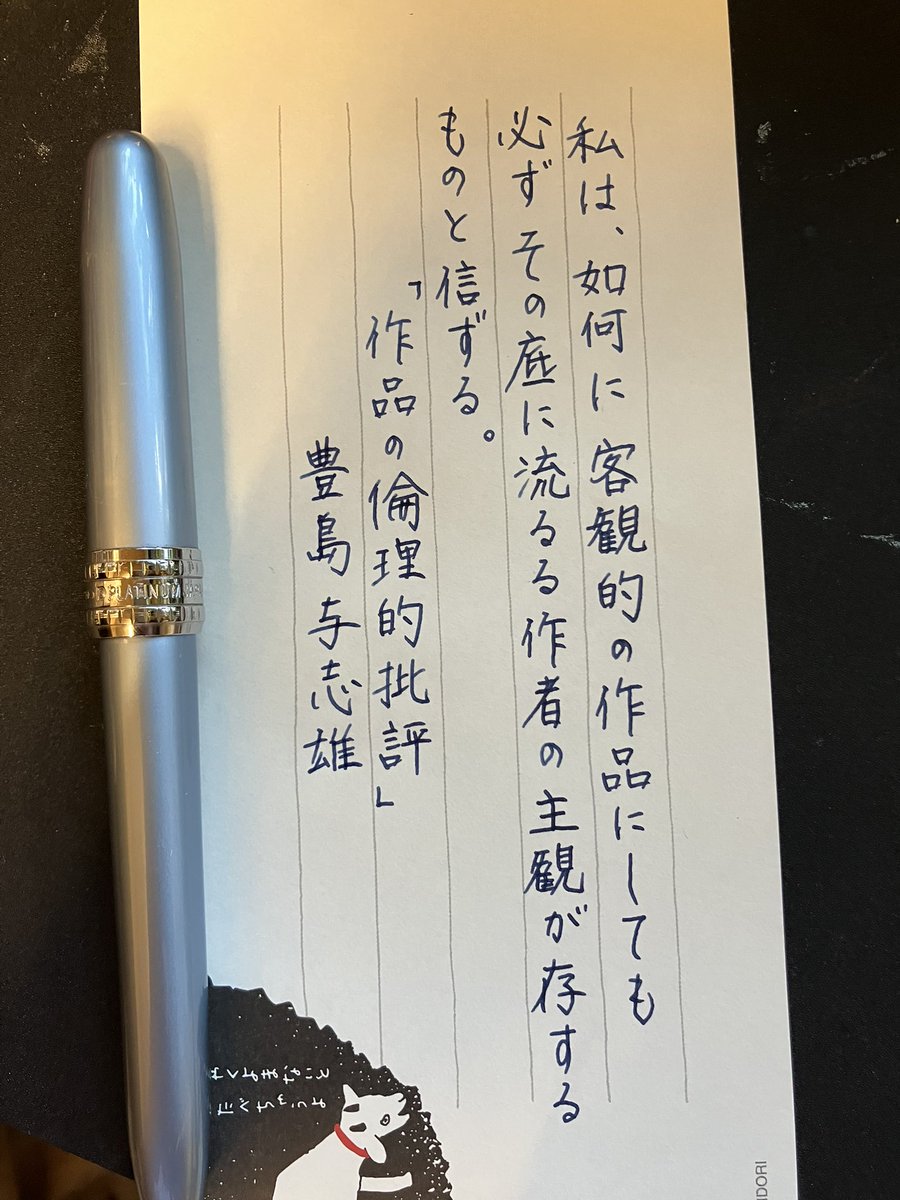 私は、如何に客観的の作品にしても
必ずその底に流るる作者の主観が存する
ものと信ずる。
「作品の倫理的批評」
豊島与志雄
PLATINUM